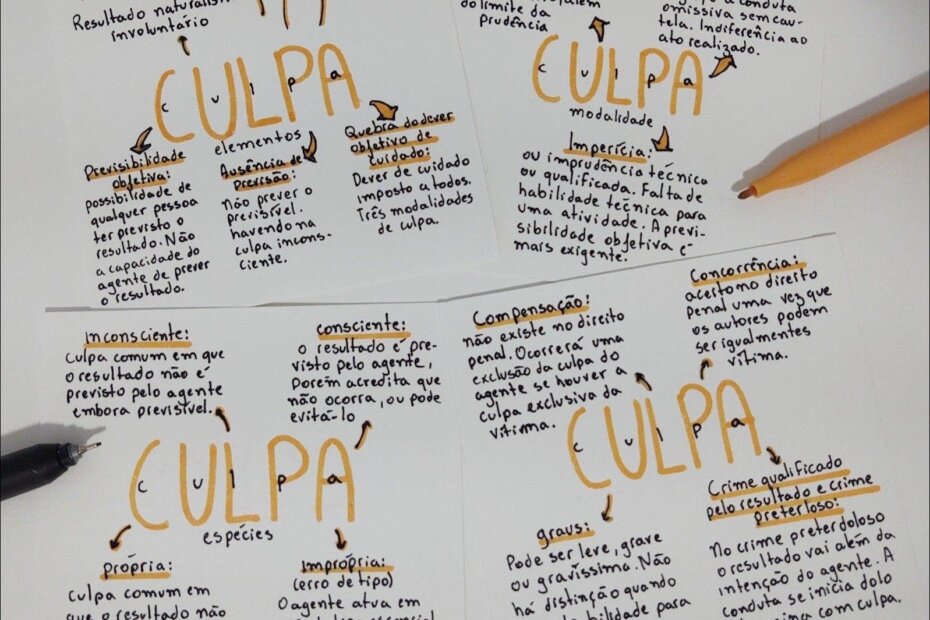 Resultado naturalís
involuntário
CULPA
culpa
elementos
Previsibilidade
objetiva:
possibilidade de
qualquer pessoa
ter previsto o
resultado. Não
a capacidade do
agente de prever
o resultado.
Ausência de
Previsão:
Não prever o
previsível.
havendo na
culpa incons-
ciente.
Quebra do dever
objetivo de
cuidado:
Dever de cuidado
imposto a todos.
Três modalidades
de culpa.
do limite da
prudência
a conduta
omissiva sem cau-
tela. Indiferença ao
ato realizado.
CULPA
culpa
modalidade
Imperícia:
ou imprudência técnica
ou qualificada. Falta de
habilidade técnica para
uma atividade. A previ-
sibilidade objetiva é
mais exigente.
inconsciente:
culpa comum em que
o resultado não é
previsto pelo agente
embora previsível.
consciente:
o resultado é pre-
visto pelo agente,
porém acredita que
não ocorra, ou pode
evitá-lo
CULPA
culpa
espécies
própria:
culpa comum em
que o resultado não
imprópria:
(erro de tipo)
O agente atua em
Compensação:
não existe no direito
penal. Ocorrerá uma
exclusão da culpa do
agente se houver a
culpa exclusiva da
vítima.
Concorrência:
aceito no direito
penal uma vez que
os autores podem
ser igualmentes
vítima.
CULPA
culpa
graus:
Pode ser leve, grave
ou gravíssima. Não
há distinção quando
bilidade para
Crime qualificado
pelo resultado e crime
preterloso:
No crime preterdoloso
o resultado vai além da
intenção do agente. A
conduta se inicia dolo
com culpa.